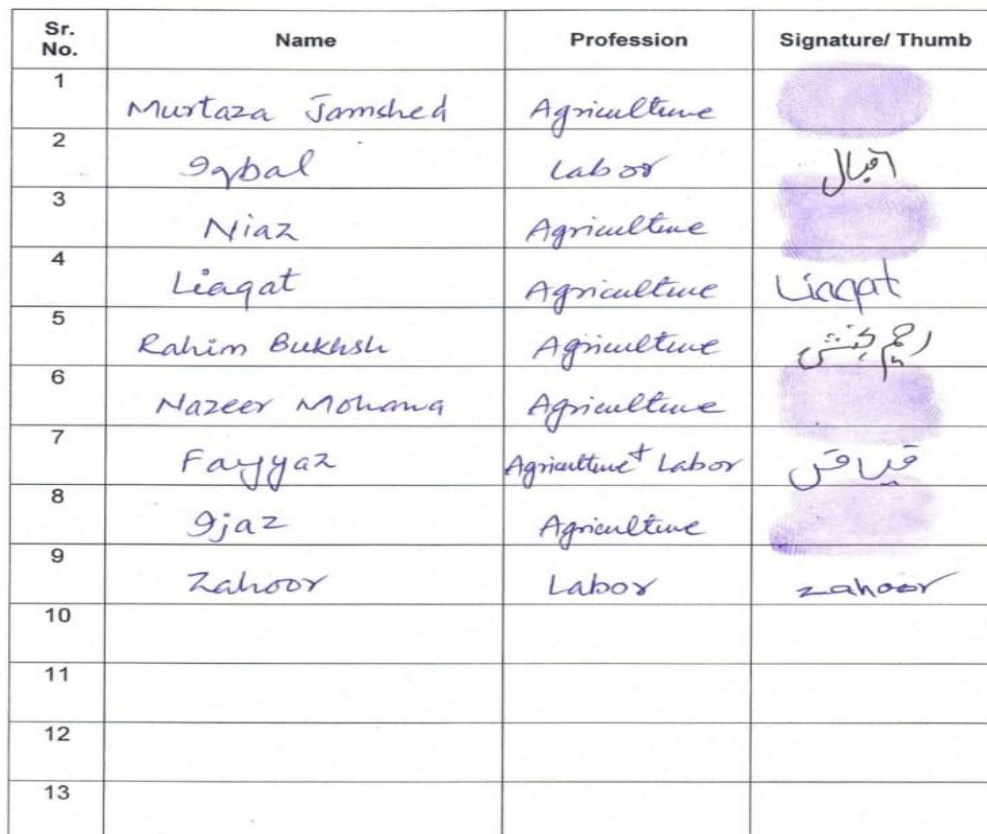 Sr. No. Name Profession Signature/ Thumb
1 Murtaza Jamshed Agriculture
2 Iqbal Labor اقبال
3 Niaz Agriculture
4 Liaqat Agriculture Liaqat
5 Rahim Bukhsh Agriculture رحیم بخش
6 Nazeer Mohana Agriculture
7 Fayyaz Agriculture + Labor
8 Ijaz Agriculture
9 Zahoor Labor zahoor
10
11
12
13